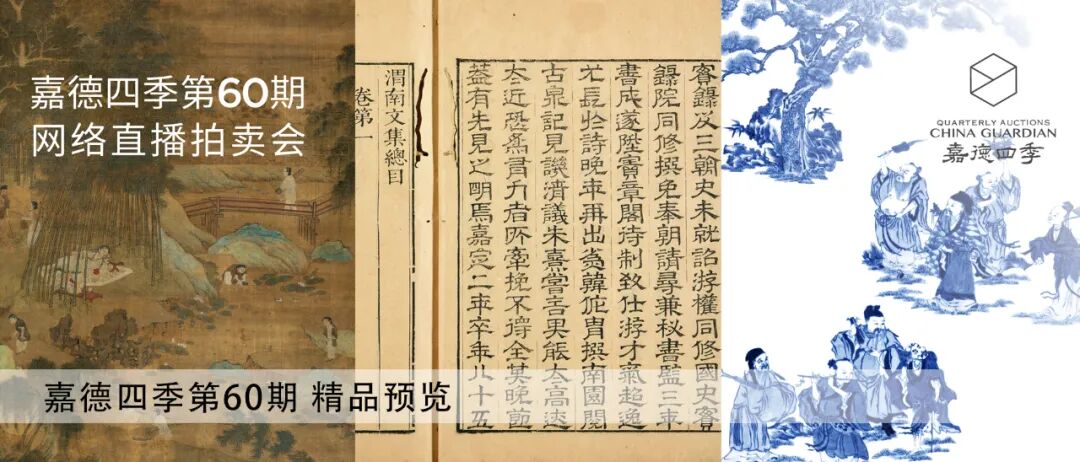 嘉德四季第60期
网络直播拍卖会
實錄及三朝史未就詔游權同修國史實
錄院同修撰免奉朝請尋兼秘書監三年
書成遂陞寶章閣待制致仕游才氣超逸
尤長於詩晚年再出為韓侂胄撰南園閱
古泉記見譏清議朱熹嘗言其能太高迹
太近恐為有力者所牽挽不得全其晚節
蓋有先見之明焉嘉定二年卒年八十五
渭南文集總目
卷第一
QUARTERLY AUCTIONS
CHINA GUARDIAN
嘉德四季
嘉德四季第60期 精品预览